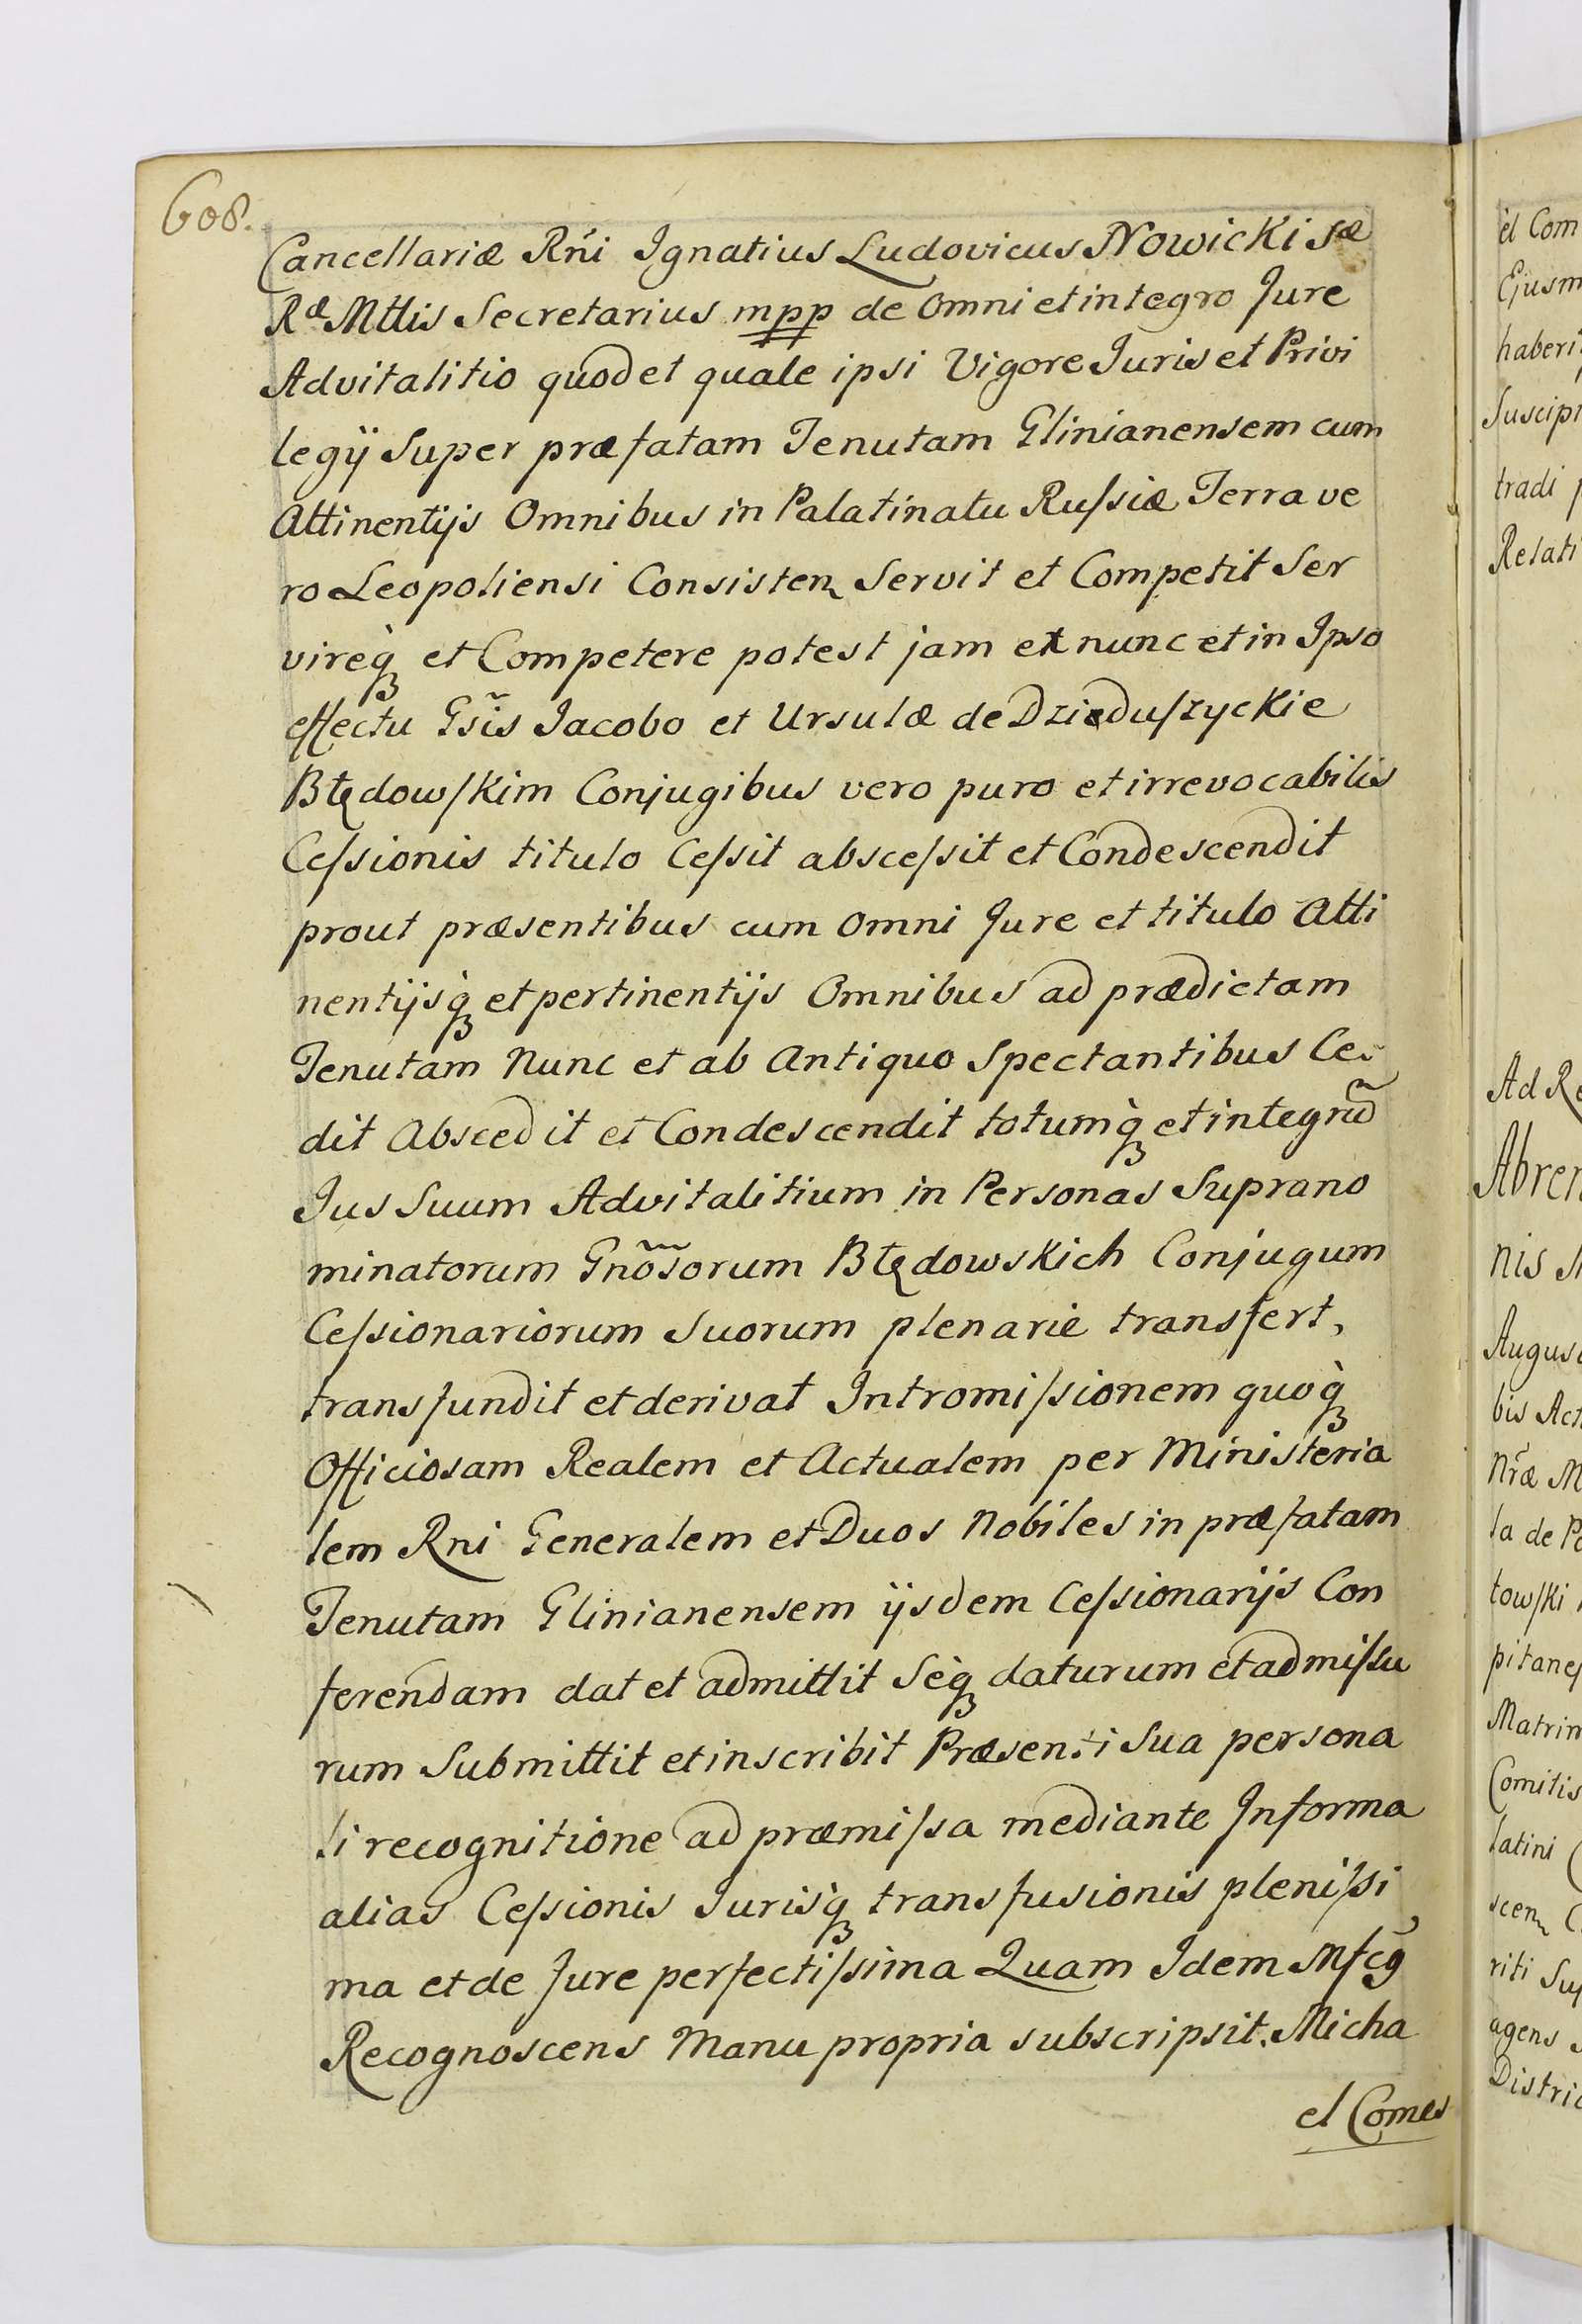 608.
Cancellariæ Rñi Ignatius Ludovicus Nowicki Sæ
Ræ Mttis Secretarius mpp de Omni et integro Jure
Advitalitio quod et quale ipsi Vigore Juris et Privi
legij Super præfatam Tenutam Glinianensem cum
Attinentijs Omnibus in Palatinatu Ruſsiæ Terra ve
ro Leopoliensi Consisten Servit et Competit Ser
vireq̀ et Competere potest jam ex nunc et in Ipso
effectu Gsĩs Jacobo et Ursulæ de Dzieduſzyckie
Błędowſkim Conjugibus vero puro et irrevocabilis
Ceſsionis titulo Ceſsit absceſsit et Condescendit
prout præsentibus cum Omni Jure et titulo Atti
nentijsq̀ et pertinentijs Omnibus ad prædictam
Tenutam Nunc et ab Antiquo Spectantibus Ce-
dit Abscedit et Condescendit totumq̀ et integrũ
Jus Suum Advitalitium in Personas Suprano
minatorum Gnõsorum Błędowskich Conjugum
Ceſsionariorum Suorum plenarie transfert,
transfundit et derivat Intromiſsionem quoq̀
Officiosam Realem et Actualem per Ministeria
lem Rni Generalem et Duos Nobiles in præfatam
Tenutam Glinianensem ijsdem Ceſsionarijs Con
ferendam dat et admittit Seq̀ daturum et admiſsu
rum Submittit et inscribit Præsenti Sua persona
li recognitione ad præmiſsa mediante Informa
alias Ceſsionis Jurisq̀ transfusionis pleniſsi
ma et de Jure perfectiſsima Quam Idem Mfcg̃
Recognoscens Manu propria subscripsit. Micha
el Comes
el Com
Ejusm
haberi
Suscipi
tradi
Relati
Ad Re
Abren
nis
Augus
bis Act
Nræ M
la de Po
towſki
pitane
Matrim
Comitis
latini
scen
riti Sup
agens
Distric